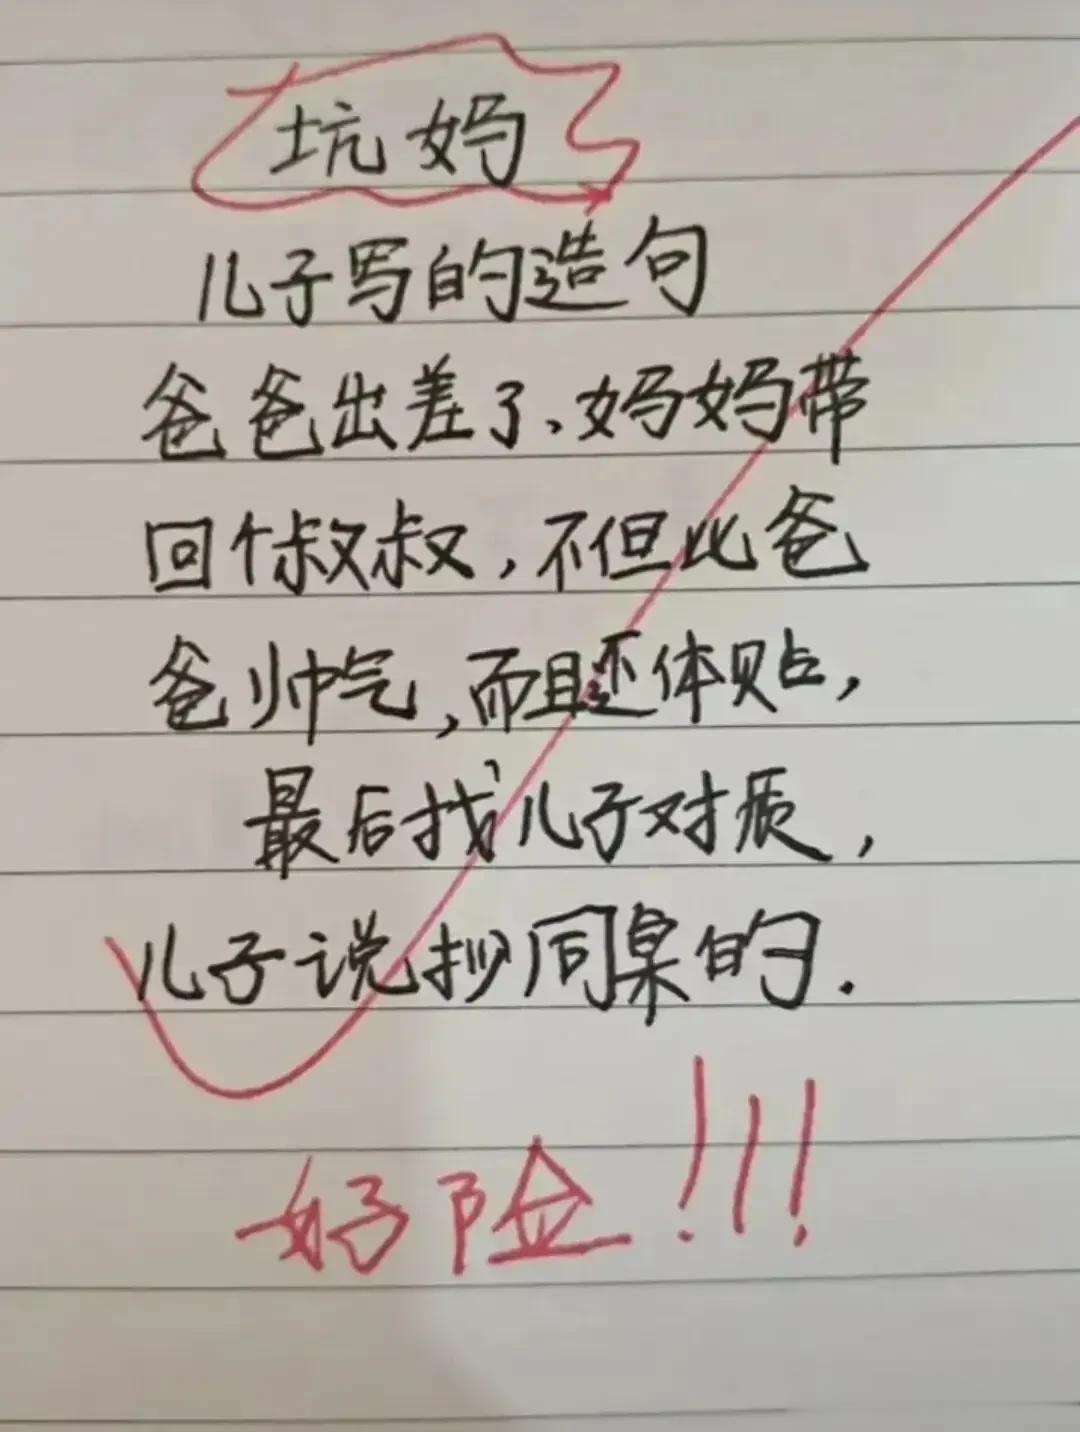 坑妈
儿子写的造句
爸爸出差了、妈妈带
回个叔叔,不但比爸
爸帅气,而且还体贴,
最后找儿子对质,
儿子说抄同桌的.
好险!!!